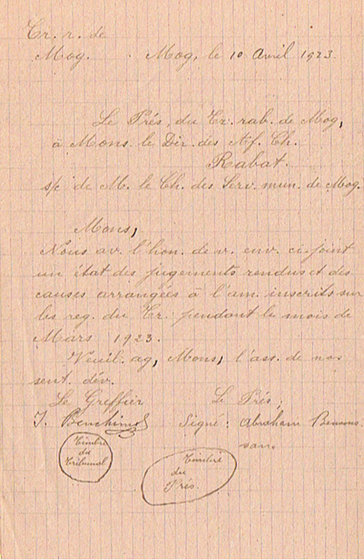 Tr. r. de
Mog. Mog, le 10 Avril 1923.
Le Prés. du Tr. rab. de Mog,
à Mons. le Dir. des Af. Ch.
Rabat.
s/c de M. le Ch. des Serv. mun. de Mog.
Mons,
Nous av. l'hon. de v. env. ci-joint
un état des jugements rendus et des
causes arrangées à l'am. inscrits sur
les reg. du Tr. pendant le mois de
Mars 1923.
Veuil. ag, Mons, l'ass. de nos
sent. dév.
Le Greffier Le Prés;
J. Benchimol Signé: Abraham Bensus-
san.
Timbre
du
Tribunal
Timbre
du
Prés.